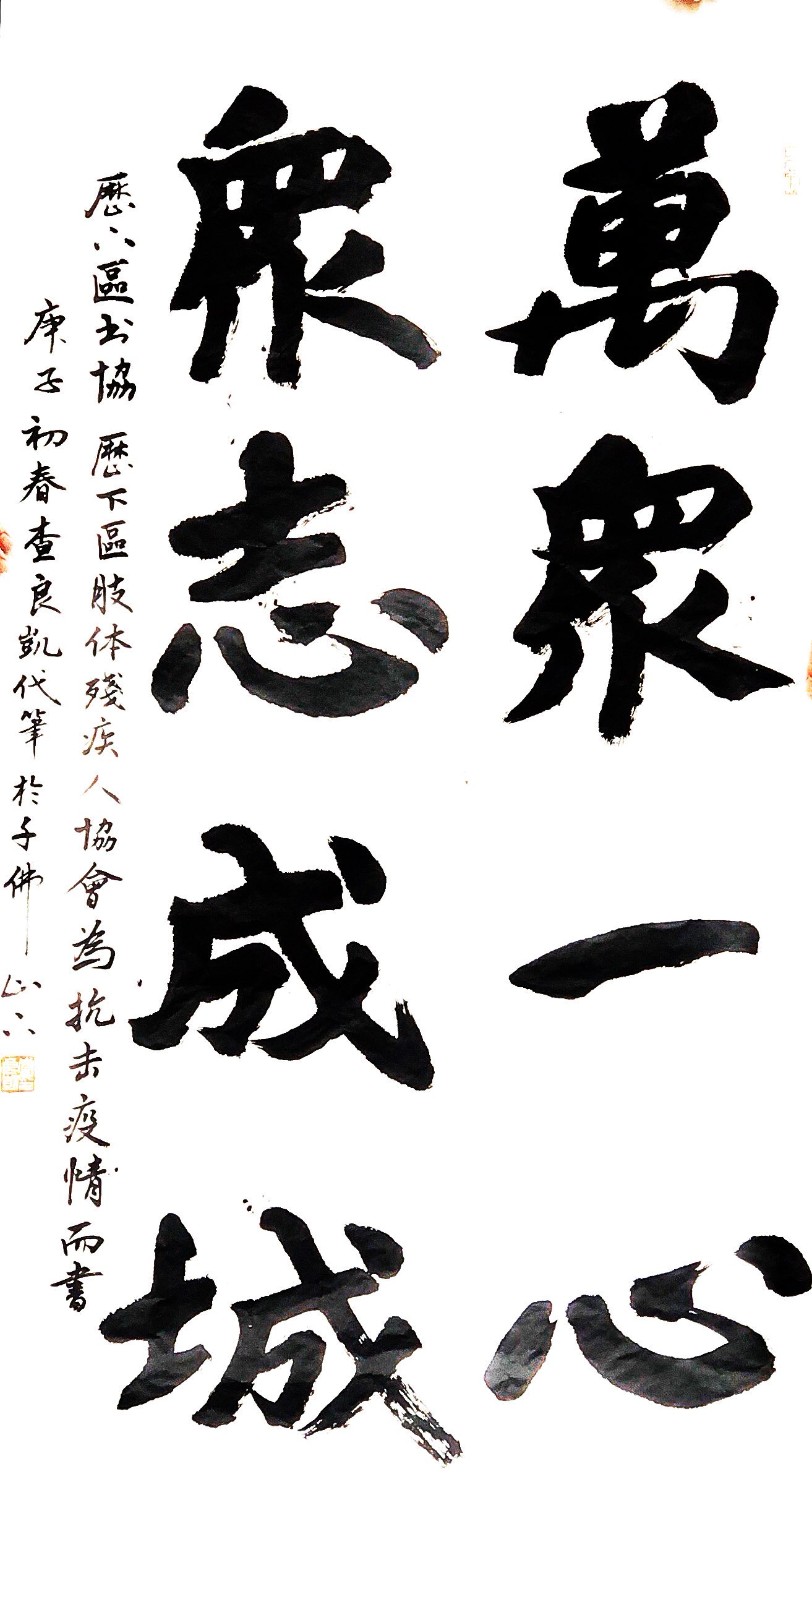 萬眾一心
眾志成城
歷下區书協 歷下區肢体殘疾人協會為抗击疫情而書
庚子初春查良凱代筆於千佛山下